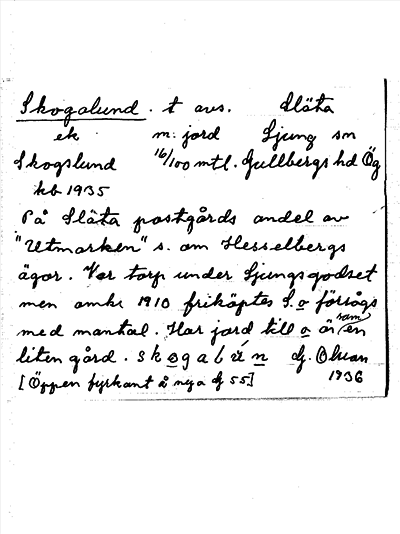 Skogalund. t avs. Släta
ek m. jord Ljung sn
Skogslund 16/100 mtl. Gullbergs hd Ög
kb 1935
På Släta postgårds andel av
"Utmarken" s. om Hesselbergs
ägor. Var torp under Ljungsgodset
men omkr 1910 friköptes S. o försågs
med mantal. Har jord till o är som en
liten gård. skogalún G. Olson
[Öppen fyrkant å nya G 55] 1936